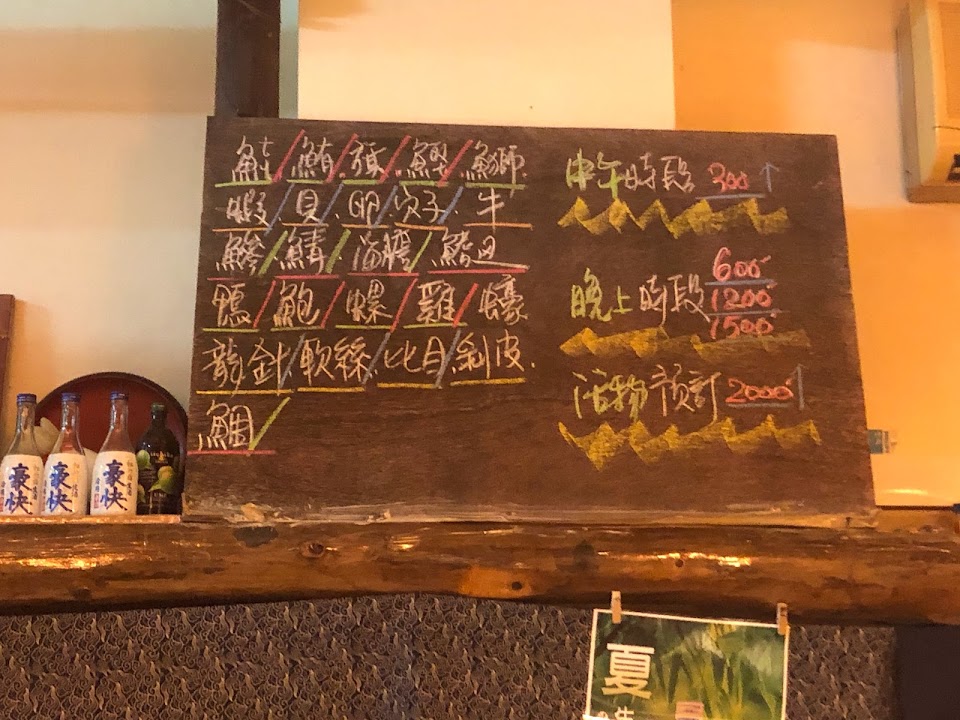 鮭/鮪/旗/鰹/魚師.
蝦/貝/卵/穴子/牛
鰺/鯖/海膽/
鴨/鮑/螺/雞/蠔
龍針/軟絲/比目/剝皮.
鯛/
中午時段 300↑
晚上時段 600
1200
1500
活物預訂 2000↑
豪快
豪快
豪快
夏